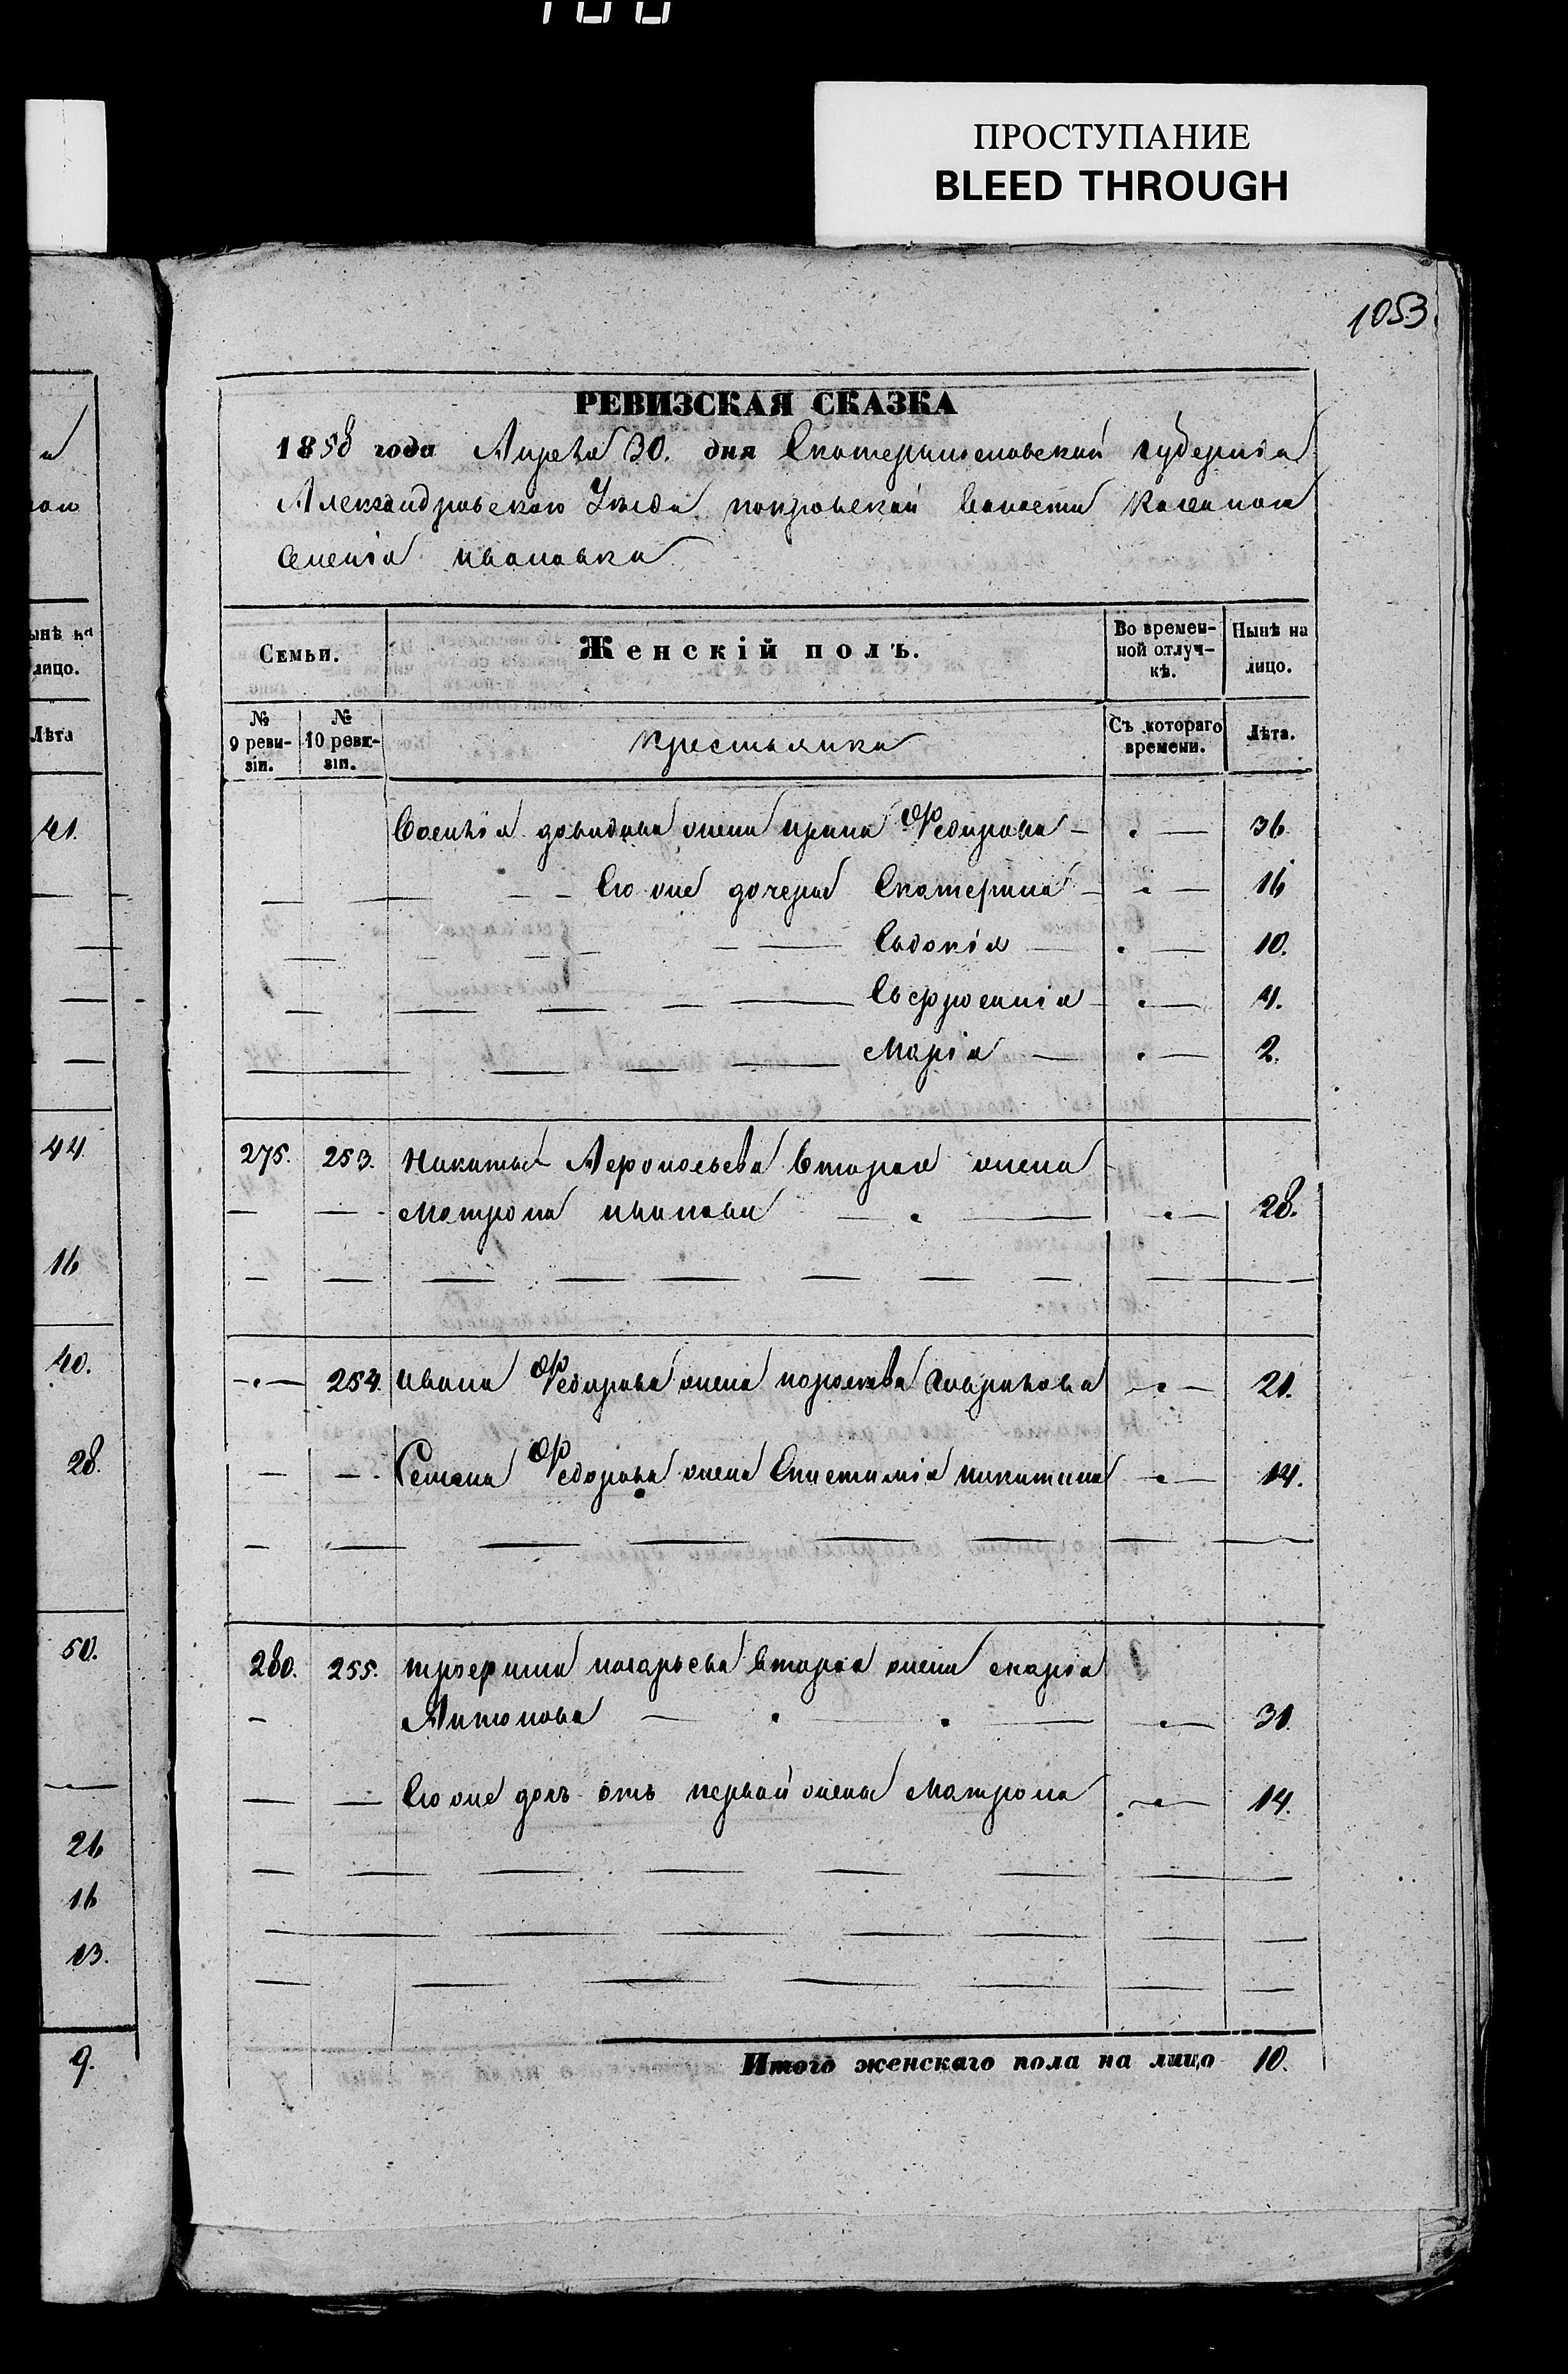 100
ПРОСТУПАНИЕ
BLEED THROUGH
1053.
РЕВИЗСКАЯ СКАЗКА
1858 года Апреля 30. дня Екатеринославской губерніи
Александровского Уезда покровской Волости Казенного
Селенія ивановки
Семьи.
Женскій полъ.
Во времен-
ной отлуч-
кѣ.
Нынѣ на
лицо.
№
9 реви-
зіи.
№
10 реви-
зіи.
крестьянка
Съ котораго
времени.
Лѣта.
Василія довидова жена ирина Федирова — 36
Его же дочери Екатерина — 16
Евдокія — 10.
Евфросинія — 4.
Марія — 2.
275. 253. Никиты вторая жена
Матрона иванова — 28.
254. ивана Федирова жена порасковия Гаврилова — 21.
Семена Федорова жена никитина — 14.
280. 255. вторая жена марія
Антонова — 31.
Его же дочь отъ первой жены Матрона — 14.
Итого женскаго пола на лицо 10.
ынѣ на
лицо.
Лѣта
41.
44.
16
40.
28.
50.
26
16
13.
9.